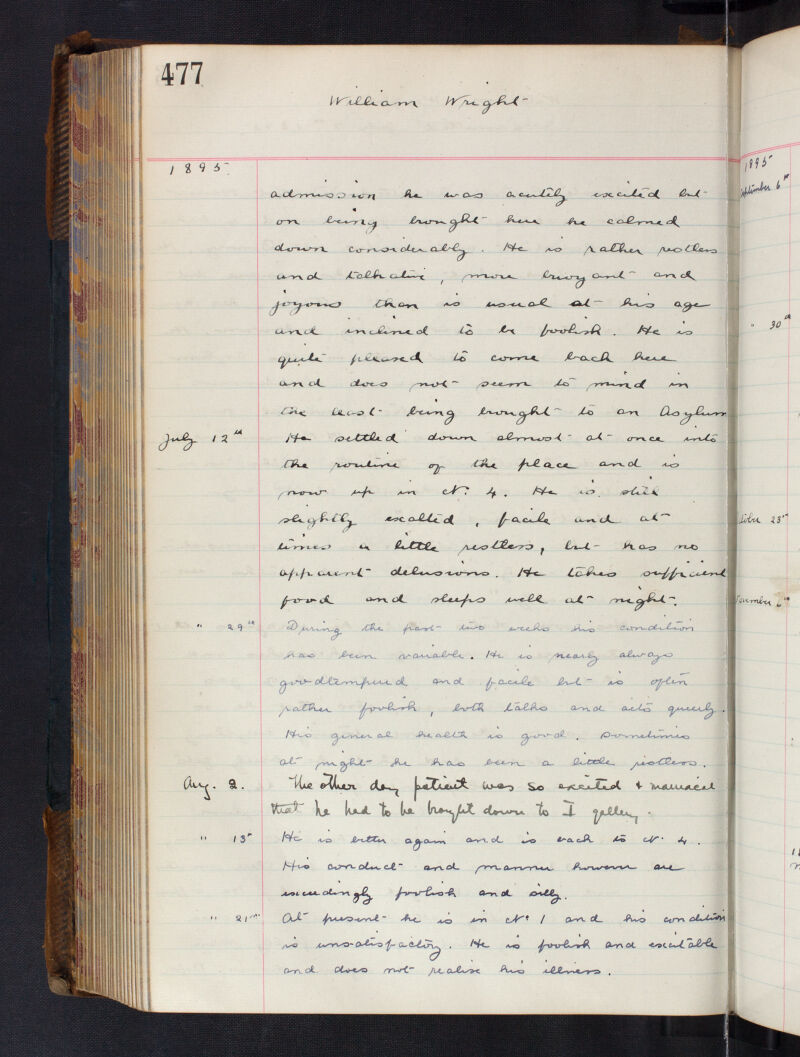 477
William Wright
1895
admission he was acutely excited but
on being brought here he calmed
down considerably. He is rather restless
and talkative, more buoyant and
joyous than is usual at his age
and inclined to be foolish. He is
quite pleased to come back here
and does not seem to mind in
the least being brought to an Asylum
July 12th He settled down almost at once into
the routine of the place and is
now up in No. 4. He is still
slightly exalted, facile and at
times a little restless, but has no
apparent delusions. He takes sufficient
food and sleeps well at night.
" 29th During the past two weeks his condition
has been variable. He is nearly always
goodtempered and facile but is often
rather foolish, both talks and acts queerly.
His general health is good. Sometimes
at night he has been a little restless.
Aug. 2. The other day patient was so excited & maniacal
that he had to be brought down to I gallery.
" 13th He is better again and is back to No. 4.
His conduct and manner however are
exceedingly foolish and silly.
" 21st At present he is in No 1 and his condition
is unsatisfactory. He is foolish and excitable
and does not realise his illness.
1895
September 6th
" 30th